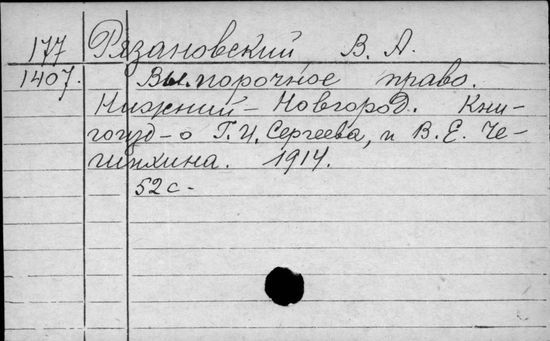 177 Рязановский В. А.
1407. Выморочное право.
Нижний-Новгород. Кни-
гоизд-о Г. И. Сергеева, и В. Е. Че-
шихина. 1914.
52 с-